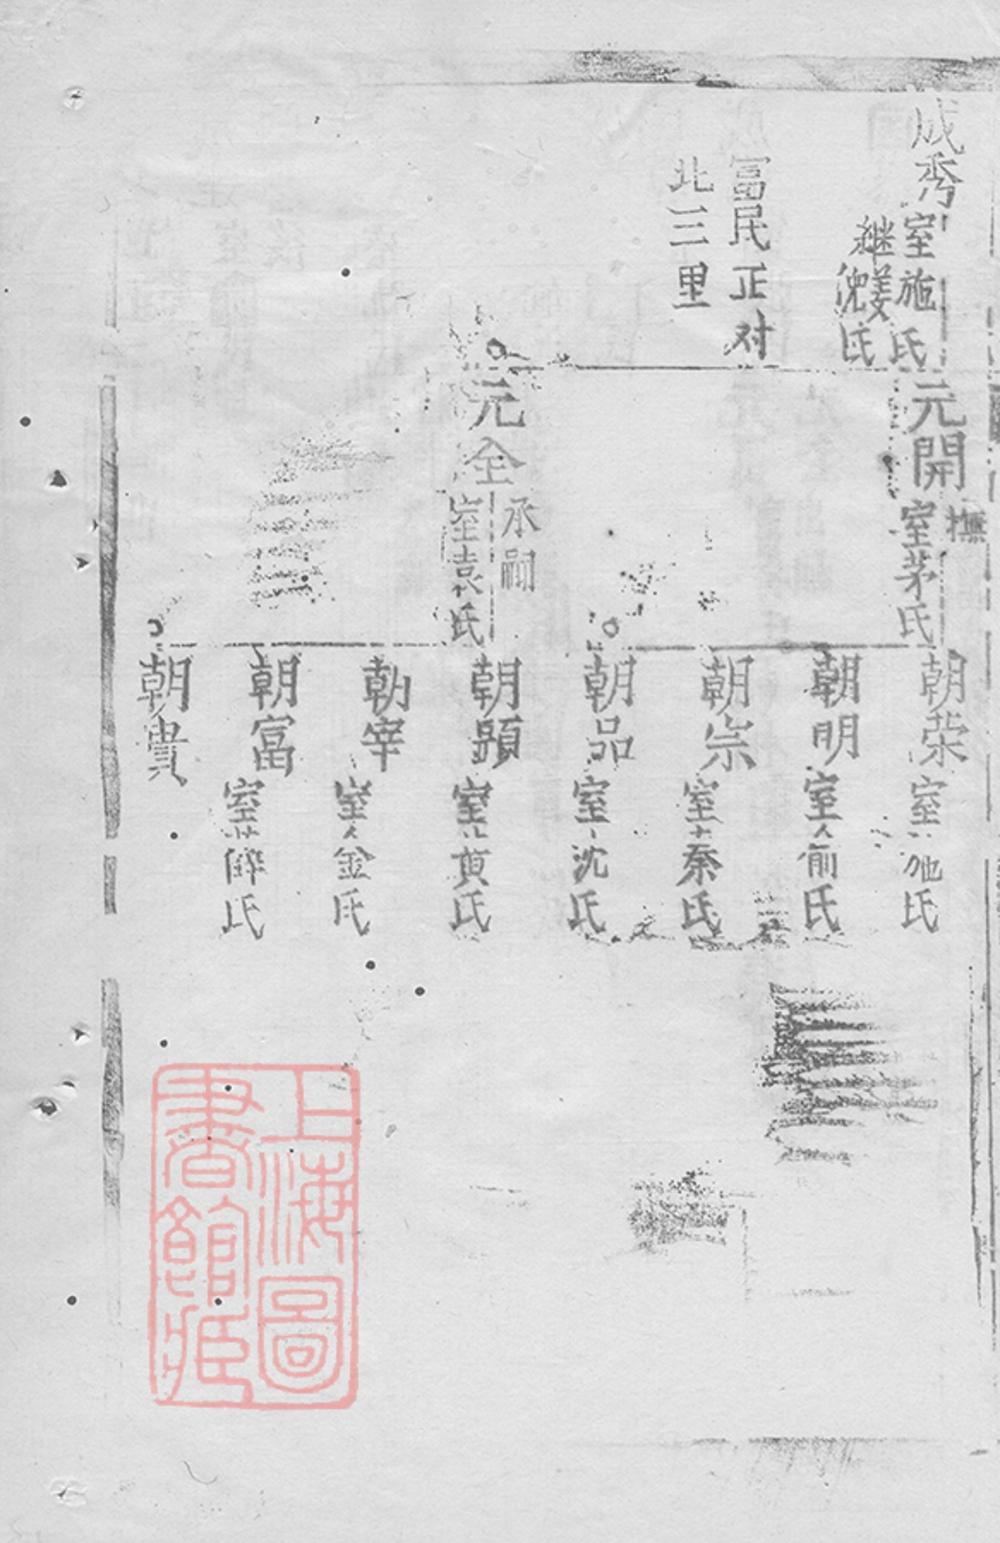 成秀
室施氏
継姜氏
富民正对
北三里
元開
撫
室茅氏
元全
承嗣
室袁氏
朝荣
室施氏
朝明
室俞氏
朝宗
室秦氏
朝品
室沈氏
朝顕
室黄氏
朝宰
室金氏
朝富
室薛氏
朝貴
上海圖
書館藏